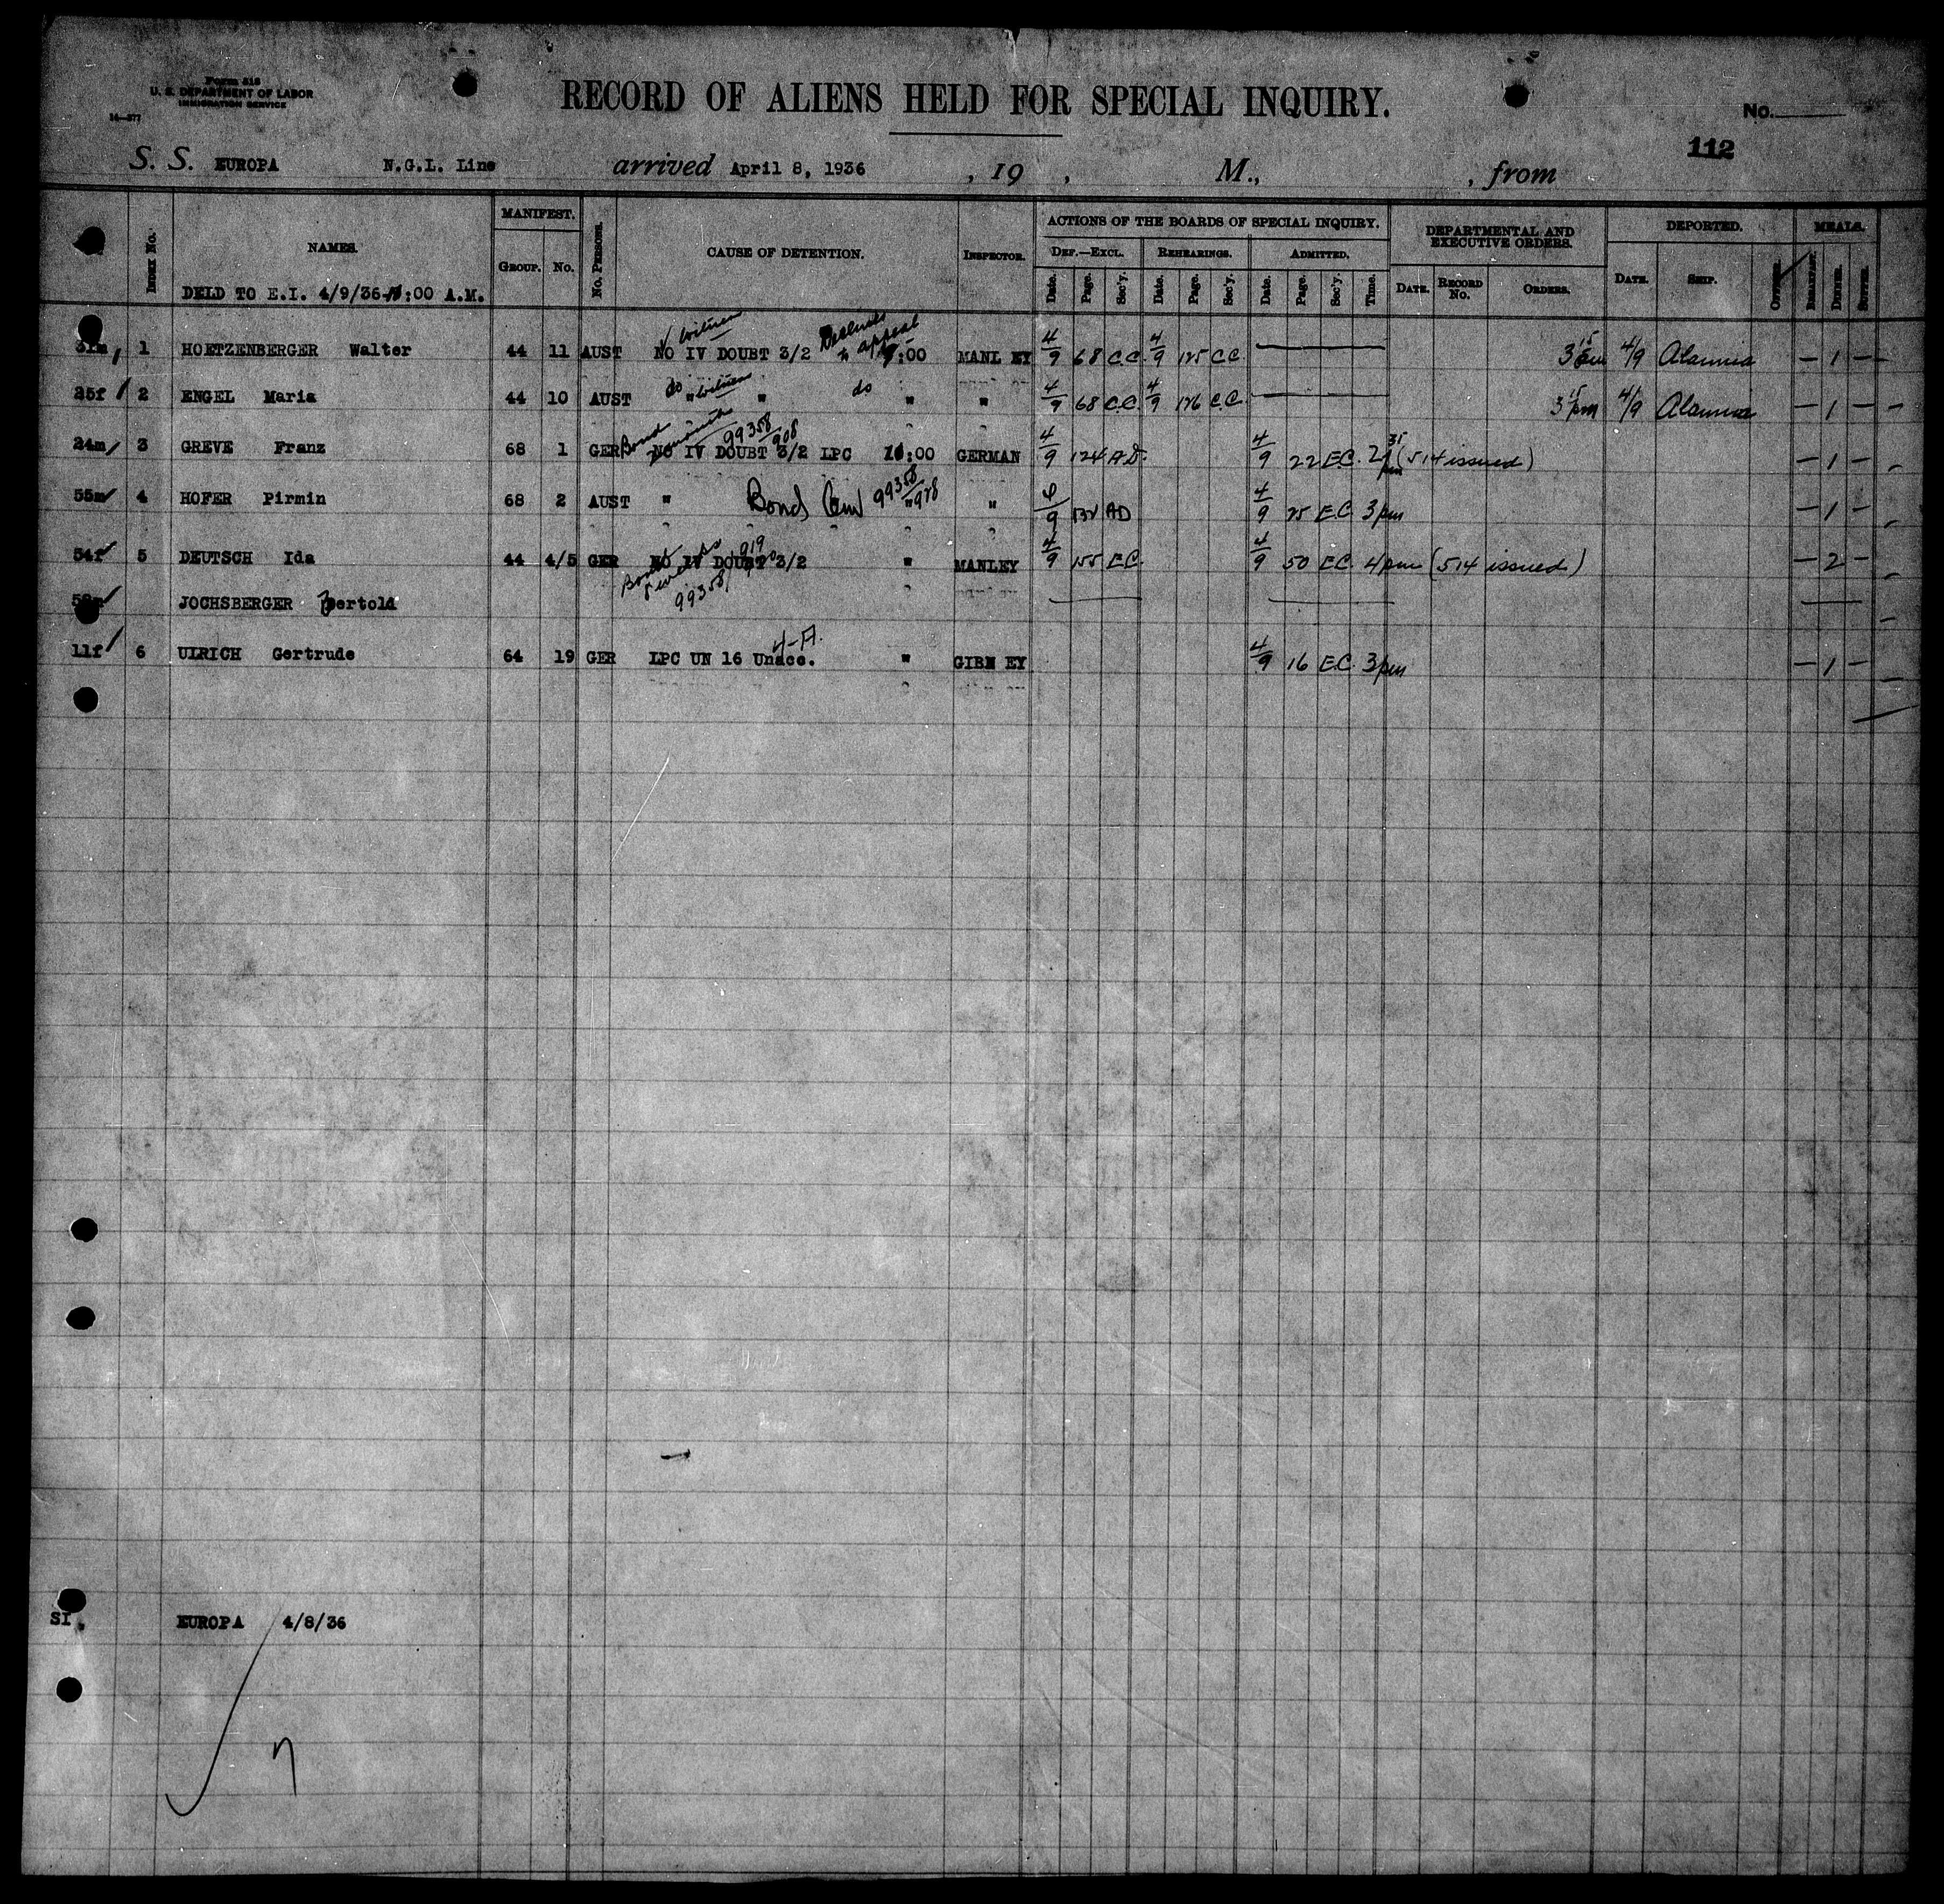 Form 518
U. S. DEPARTMENT OF LABOR
IMMIGRATION SERVICE
14—377
RECORD OF ALIENS HELD FOR SPECIAL INQUIRY.
No.
112
S. S. EUROPA N.G.L. Line arrived April 8, 1936 , 19 , M., , from
INDEX No. NAMES. MANIFEST. GROUP. No. No. PERSONS. CAUSE OF DETENTION. INSPECTOR. ACTIONS OF THE BOARDS OF SPECIAL INQUIRY. DEPARTMENTAL AND EXECUTIVE ORDERS. DEPORTED. MEALS.
DEF.—EXCL. REHEARINGS. ADMITTED.
Date. Page. Sec'y. Date. Page. Sec'y. Date. Page. Sec'y. Time. DATE. RECORD No. ORDERS. DATE. SHIP. BREAKFAST. DINNER. SUPPER.
DELD TO E.I. 4/9/36 :00 A.M.
witness
31m 1 HOETZENBERGER Walter 44 11 AUST NO IV DOUBT 3/2 appeal :00 MANLEY 4/9 68 C.C. 4/9 125 C.C. 3 15 pm 4/9 Alaunia — 1 —
25f 2 ENGEL Maria 44 10 AUST do " witness " do " " 4/9 68 C.C. 4/9 126 C.C. 3 15 pm 4/9 Alaunia — 1 —
Bond 99358/908
24m 3 GREVE Franz 68 1 GER NO IV DOUBT 3/2 LPC :00 GERMAN 4/9 124 A.D. 4/9 22 E.C. 2 35 pm (514 issued) — 1 —
55m 4 HOFER Pirmin 68 2 AUST " Bond 99358/928 " " 4/9 132 AD 4/9 25 E.C. 3 pm — 1 —
54f 5 DEUTSCH Ida 44 4/5 GER NO IV DOUBT 3/2 " MANLEY 4/9 155 E.C. 4/9 50 E.C. 4 pm (514 issued) — 2 —
Bond 99358/919
JOCHSBERGER Bertold
4-A.
11f 6 ULRICH Gertrude 64 19 GER LPC UN 16 Unacc. " GIBNEY 4/9 16 E.C. 3 pm — 1 —
SI. EUROPA 4/8/36